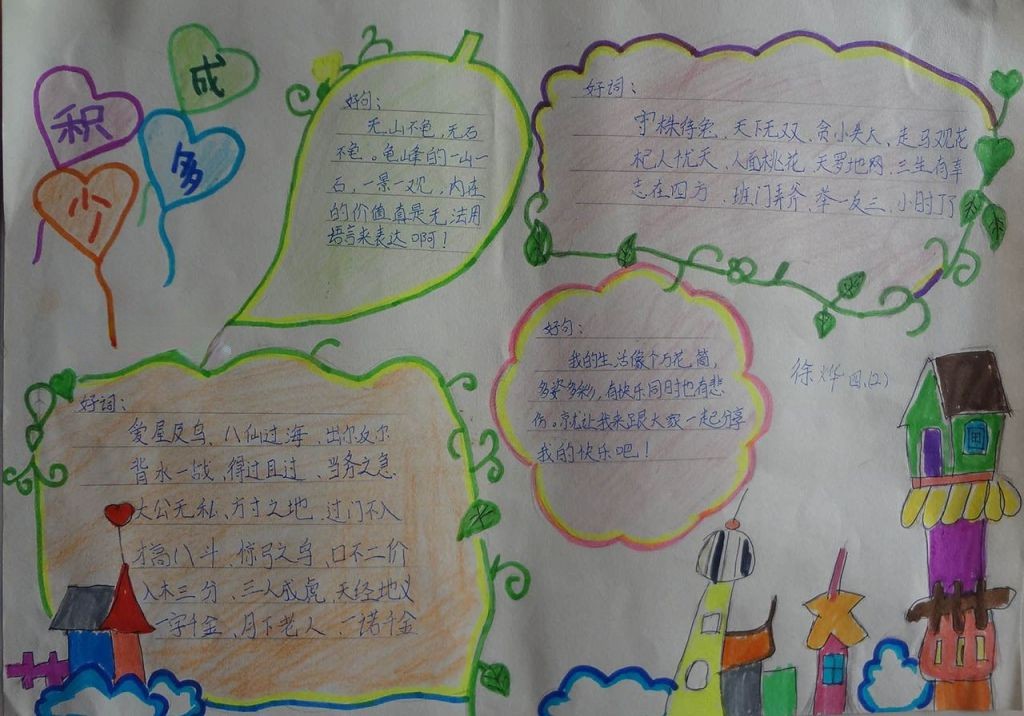 积
少
成
多
好句：
无山不龟，无石
不龟。龟峰的一山一
石，一景一观，内在
的价值真是无法用
语言来表达啊！
好词：
守株待兔、天下无双、贪小失大、走马观花
杞人忧天、人面桃花、天罗地网、三生有幸
志在四方、班门弄斧、举一反三、小时了了
好句：
我的生活像个万花筒，
多姿多彩，有快乐同时也有悲
伤。就让我来跟大家一起分享
我的快乐吧！
徐烨 四.(2)
好词：
爱屋及乌、八仙过海、出尔反尔
背水一战、得过且过、当务之急
大公无私、方寸之地、过门不入
才高八斗、惊弓之鸟、口不二价
入木三分、三人成虎、天经地义
一字千金、月下老人、一诺千金